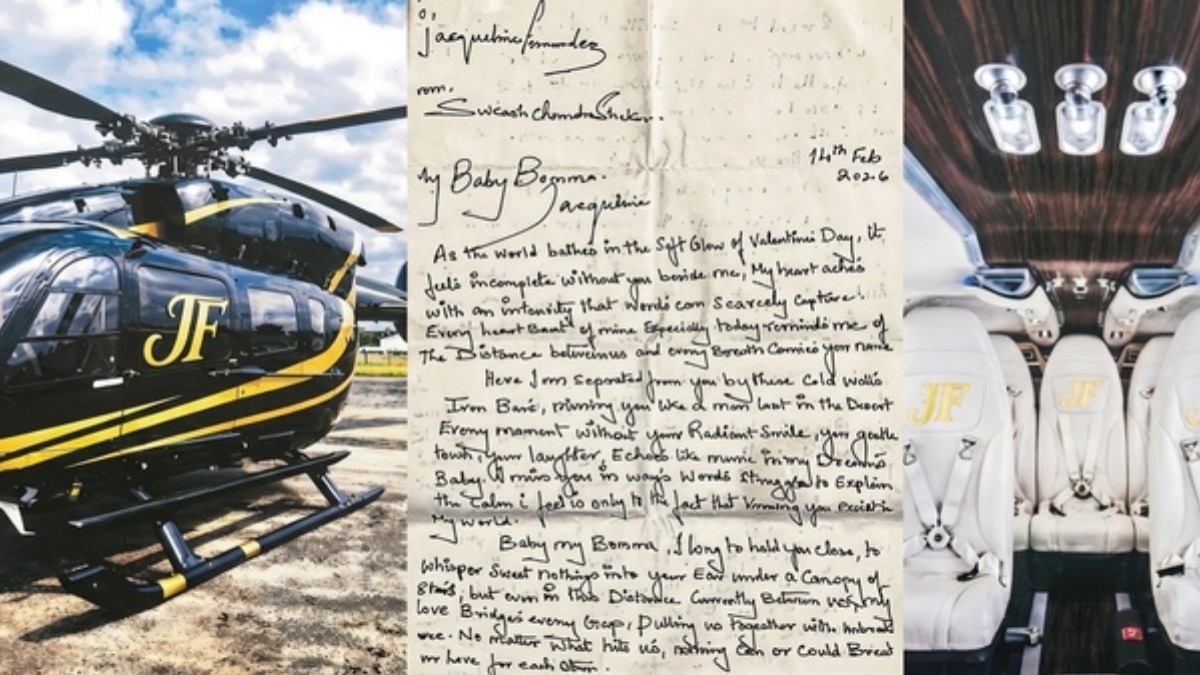 JF
o,
Jacqueline Fernandez
rom,
Sukash Chandra Shekar.
14th Feb
2026
My Baby Bomma.
Jacqueline
As the world bathes in the Soft Glow of Valentines Day, It
feels incomplete without you beside me, My heart aches
with an intensity that words can Scarcely Capture.
Every heart Beat of mine Especially today reminds me of
The Distance between us and every Breath Carries your name
Here I am separated from you by these Cold walls
Iron Bars, missing you like a man lost in the Desert
Every moment without your Radiant Smile, your gentle
touch, your laughter, Echoes like music in my Dreams
Baby. I miss you in ways Words Struggle to Explain
the Calm i feel is only to the fact that knowing you exist in
My world.
Baby my Bomma, I long to hold you close, to
whisper Sweet nothings into your Ear under a Canopy of
Stars, but even in this Distance Currently Between us, my
love Bridges every Gap, Pulling us together with
No matter what hits us, nothing Can or Could Break
or here for each other.
JF
JF